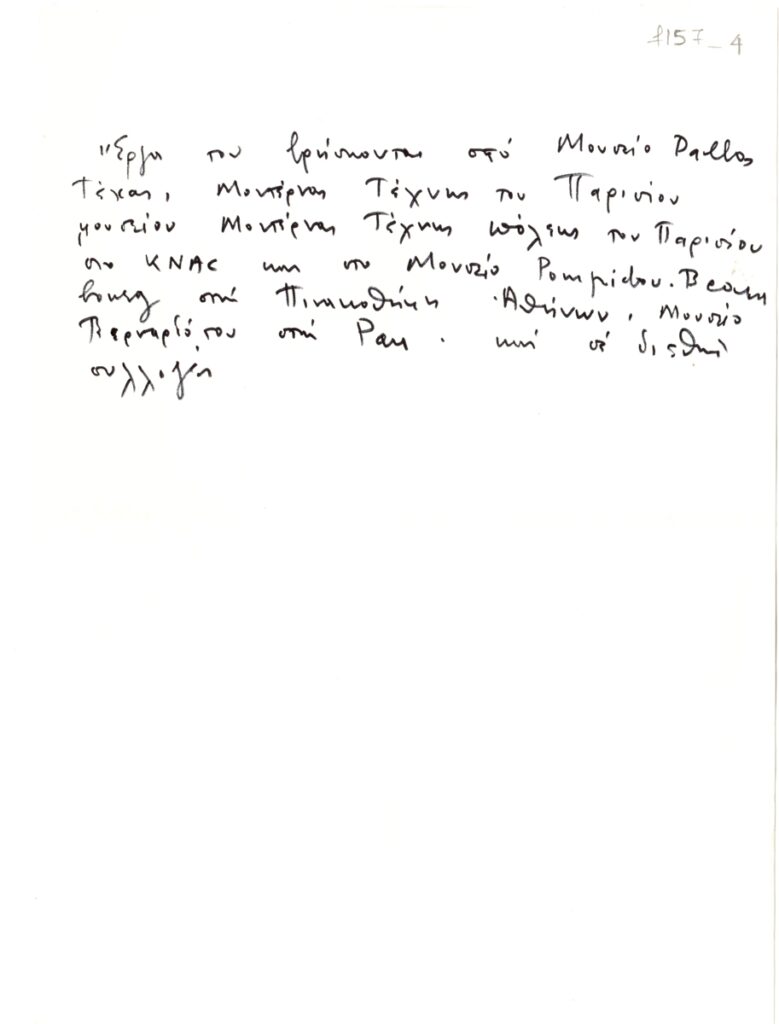 f157_4
Ἔργα του βρίσκονται στό Μουσείο Dallas
Τέχας, Μοντέρνας Τέχνης του Παρισίου
μουσείου Μοντέρνας Τέχνης πόλεως του Παρισίου
στο KNAC και στο Μουσείο Pompidou. Beau
bourg στή Πινακοθήκη Ἀθήνων, Μουσείο
στή . καί σέ διεθνή
συλλογές